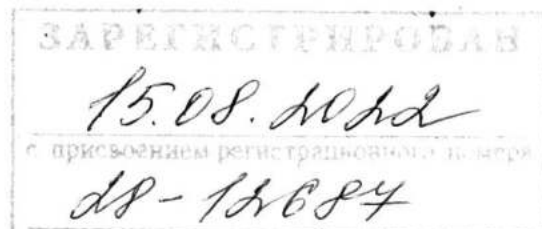 ЗАРЕГИСТРИРОВАН
15.08.2022
с присвоением регистрационного номера
28-12687